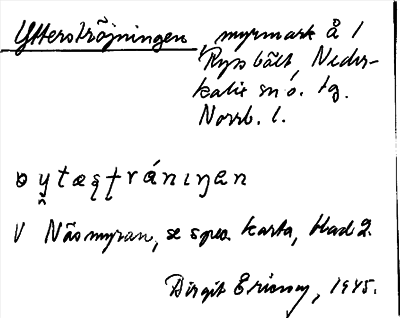 Ytterströjningen, myrmark å 1
Rysbält, Neder-
kalix sn o. tg.
Norrb. l.
ytæştránıŋen
V Näsmyran, se spec. karta, blad 2.
Birgit Ericson, 1945.